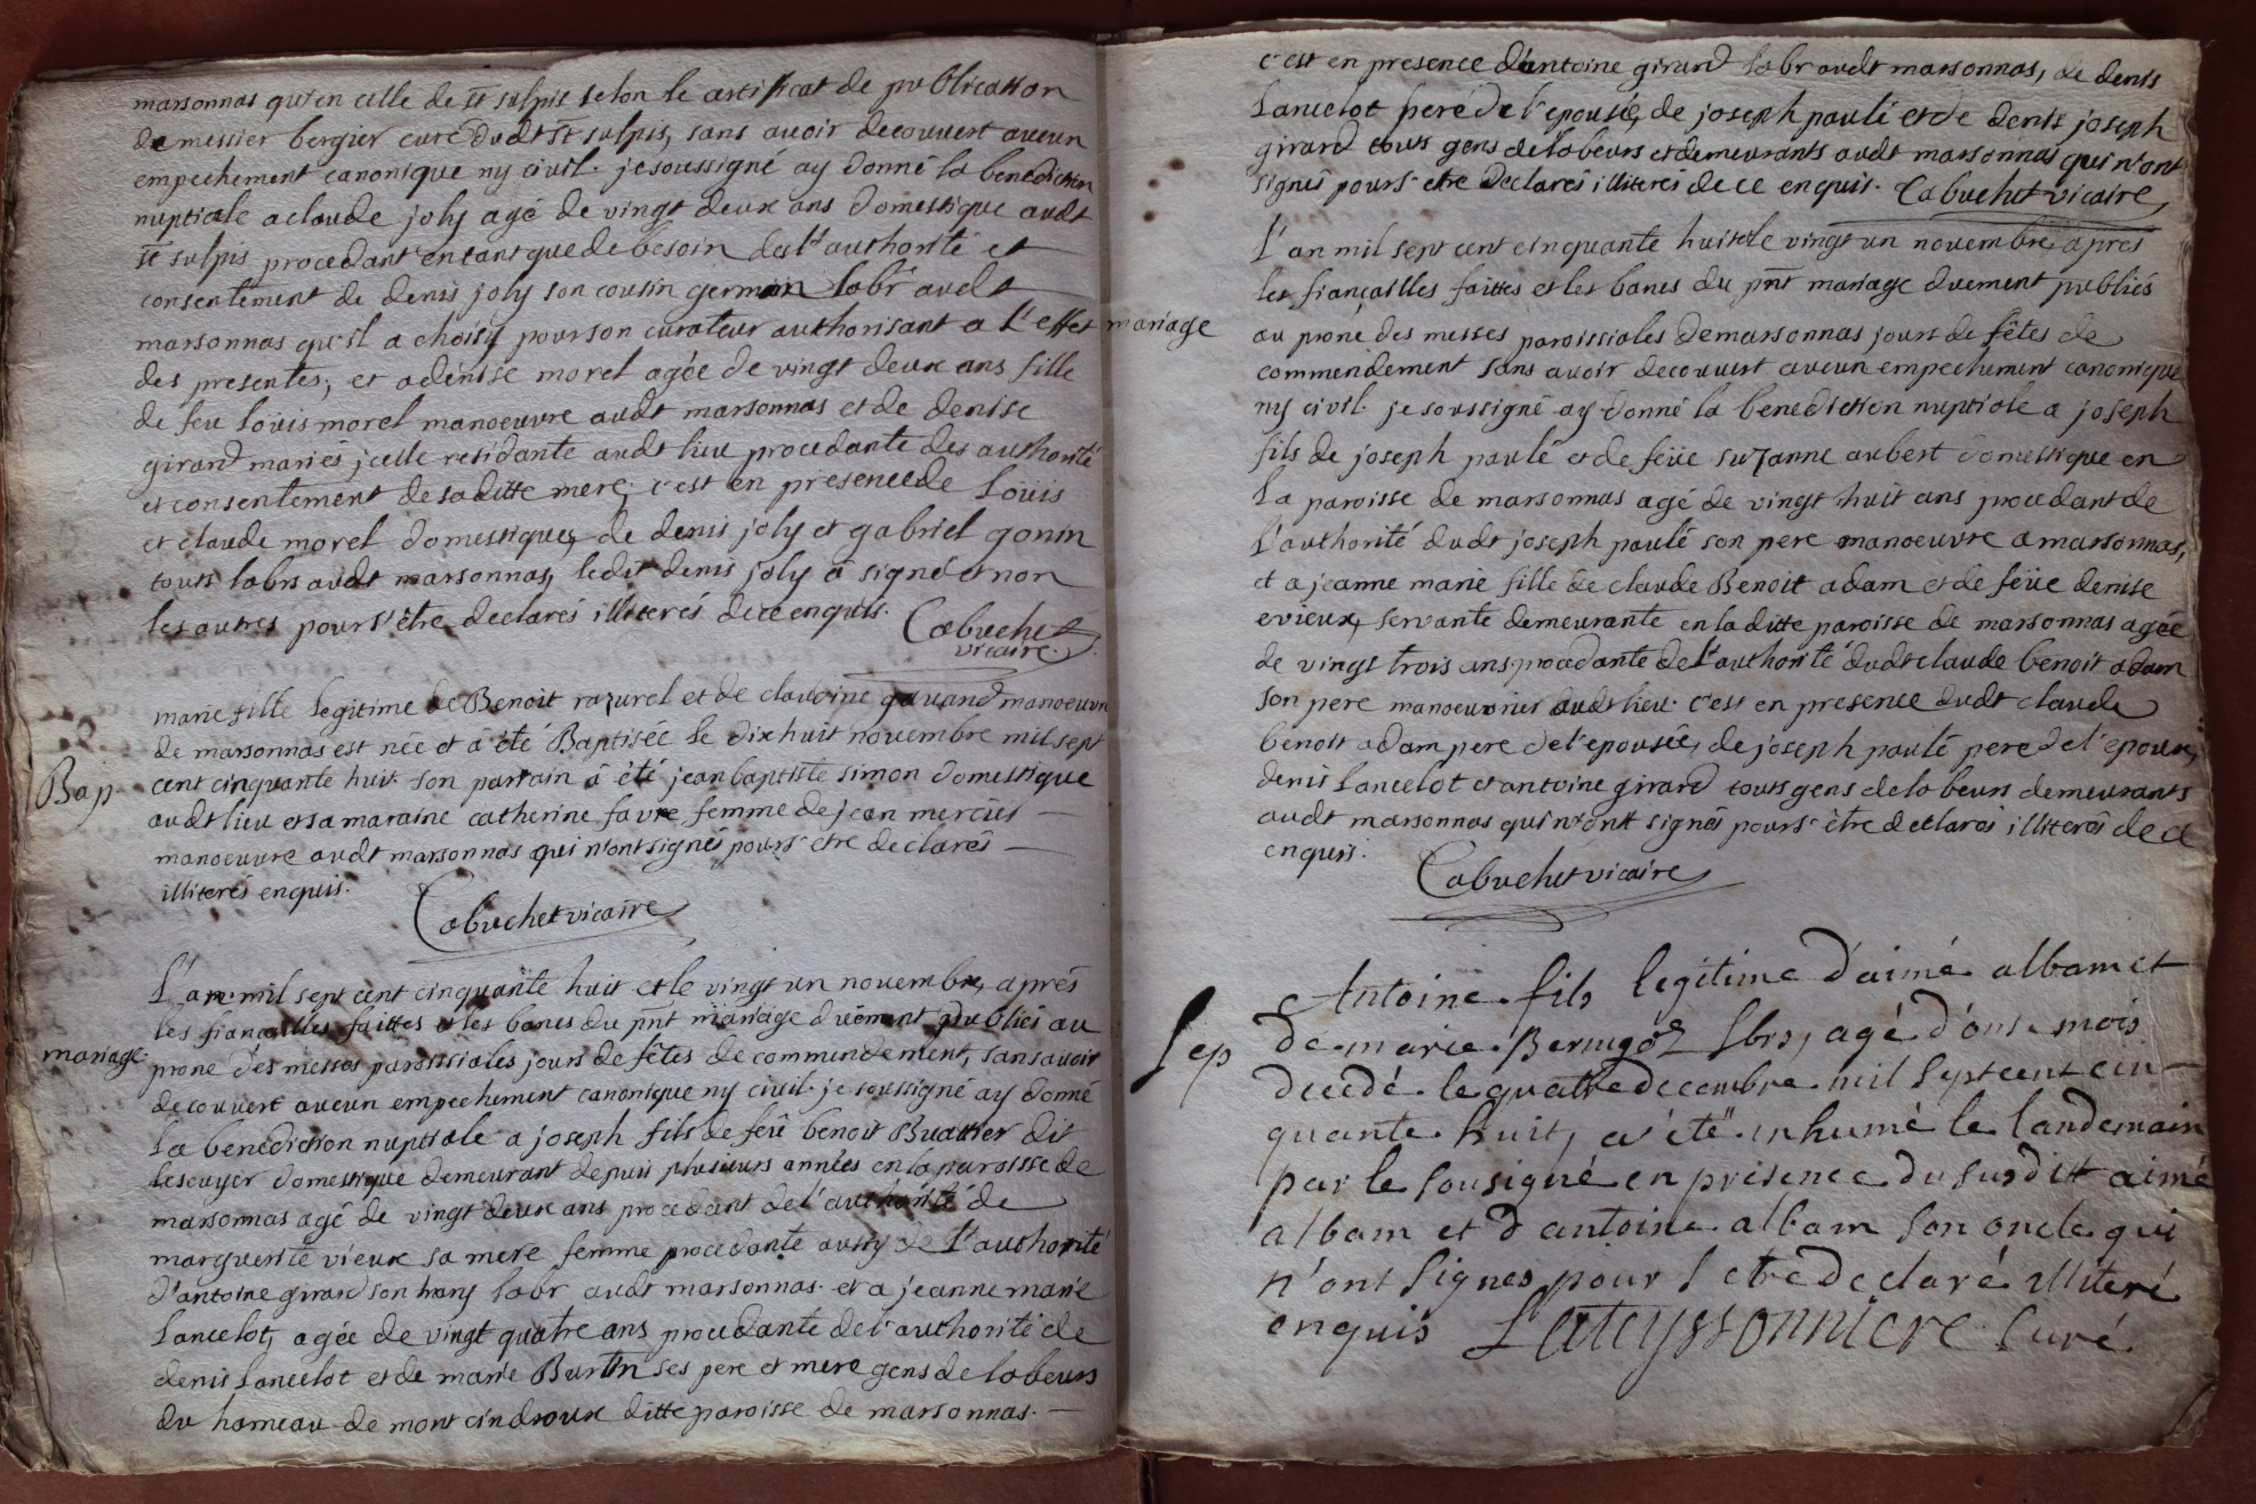 marsonnas qu'en celle de st sulpis selon le certificat de publication
de messier bergier curé dudt st sulpis, sans avoir decouvert aucun
empechement canonique ny civil. je soussigné ay donné la benediction
nuptiale a claude joly agé de vingt deux ans domestique audt
st sulpis procedant entant que de besoin de l'authorité et
consentement de denis joly son cousin germain labr audt
marsonnas qu'il a choisy pour son curateur authorisant a l'effet
des presentes, et a denise morel agée de vingt deux ans fille
de feu loüis morel manoeuvre audt marsonnas et de denise
girard mariés jcelle residante audt lieu procedante des authorité
et consentement de sa ditte mere, c'est en presence de loüis
et claude morel domestiques, de denis joly et gabriel gonin
touts labrs audt marsonnas, ledit denis joly a signé et non
les autres pour s'être declarés illiterés de ce enquis. Cabuchet
vicaire.
Bap
marie fille legitime de Benoit razurel et de claudine gavand manoeuvre
de marsonnas est née et a été Baptisée le dix huit novembre mil sept
cent cinquante huit. son parrain a été jean baptiste simon domestique
audt lieu et sa maraine catherine favre femme de jean mercier
manoeuvre audt marsonnas qui n'ont signés pour s'etre declarés
illiterés enquis.
Cabuchet vicaire
mariage.
L'an mil sept cent cinquante huit et le vingt un novembre, aprés
les fiançailles faittes et les bancs du pnt mariage duëment publiés au
prone des messes paroissiales jours de fêtes de commendement, sans avoir
decouvert aucun empechement canonique ny civil. je soussigné ay donné
la benediction nuptiale a joseph fils de feü benoit Buattier dit
lescuyer domestique demeurant depuis plusieurs années en la paroisse de
marsonnas agé de vingt deux ans procedant de l'authorité de
marguerite vieux sa mere femme procedante aussy de l'authorité
d'antoine girard son mary labr audt marsonnas. et a jeanne marie
lancelot, agée de vingt quatre ans procedante de l'authorité de
denis lancelot et de marie Burtin ses pere et mere gens de labeurs
du hameau de mont cindroux ditte paroisse de marsonnas.
c'est en presence d'antoine girard labr audt marsonnas, de denis
lancelot peré de l'epousée, de joseph paulé et de denis joseph
girard touts gens de labeurs et demeurants audt marsonnas qui n'ont
signés pour s'etre declarés illiterés de ce enquis. Cabuchet vicaire
mariage
L'an mil sept cent cinquante huit et le vingt un novembre, aprés
les fiançailles faittes et les bancs du pnt mariage duement publiés
au prone des messes paroissiales de marsonnas jours de fêtes de
commendement sans avoir decouvert aucun empechement canonique
ny civil. je soussigné ay donné la benediction nuptiale a joseph
fils de joseph paulé et de feüe suzanne aubert domestique en
la paroisse de marsonnas agé de vingt huit ans procedant de
l'authorité dudt joseph paulé son pere manoeuvre a marsonnas,
et a jeanne marie fille de claude Benoit adam et de feüe denise
evieux, servante demeurante en la ditte paroisse de marsonnas agée
de vingt trois ans procedante de l'authorité dudt claude benoit adam
son pere manoeuvrier audt lieu. c'est en presence dudt claude
benoit adam pere de l'epousée, de joseph paulé pere de l'epoux,
denis lancelot et antoine girard touts gens de labeurs demeurants
audt marsonnas qui n'ont signés pour s'être declarés illiterés de ce
enquis.
Cabuchet vicaire
Sep
Antoine fils legitime d'aimé albam et
de marie lbrs, agé d'onse mois
decedé le quatre decembre mil sept cent cin-
quante huit, a été inhumé le landemain
par le sousigné en présence du susditt aimé
albam et d'antoine albam son oncle qui
n'ont signes pour s etre declaré illiteré
enquis Lateyssonniere Curé.